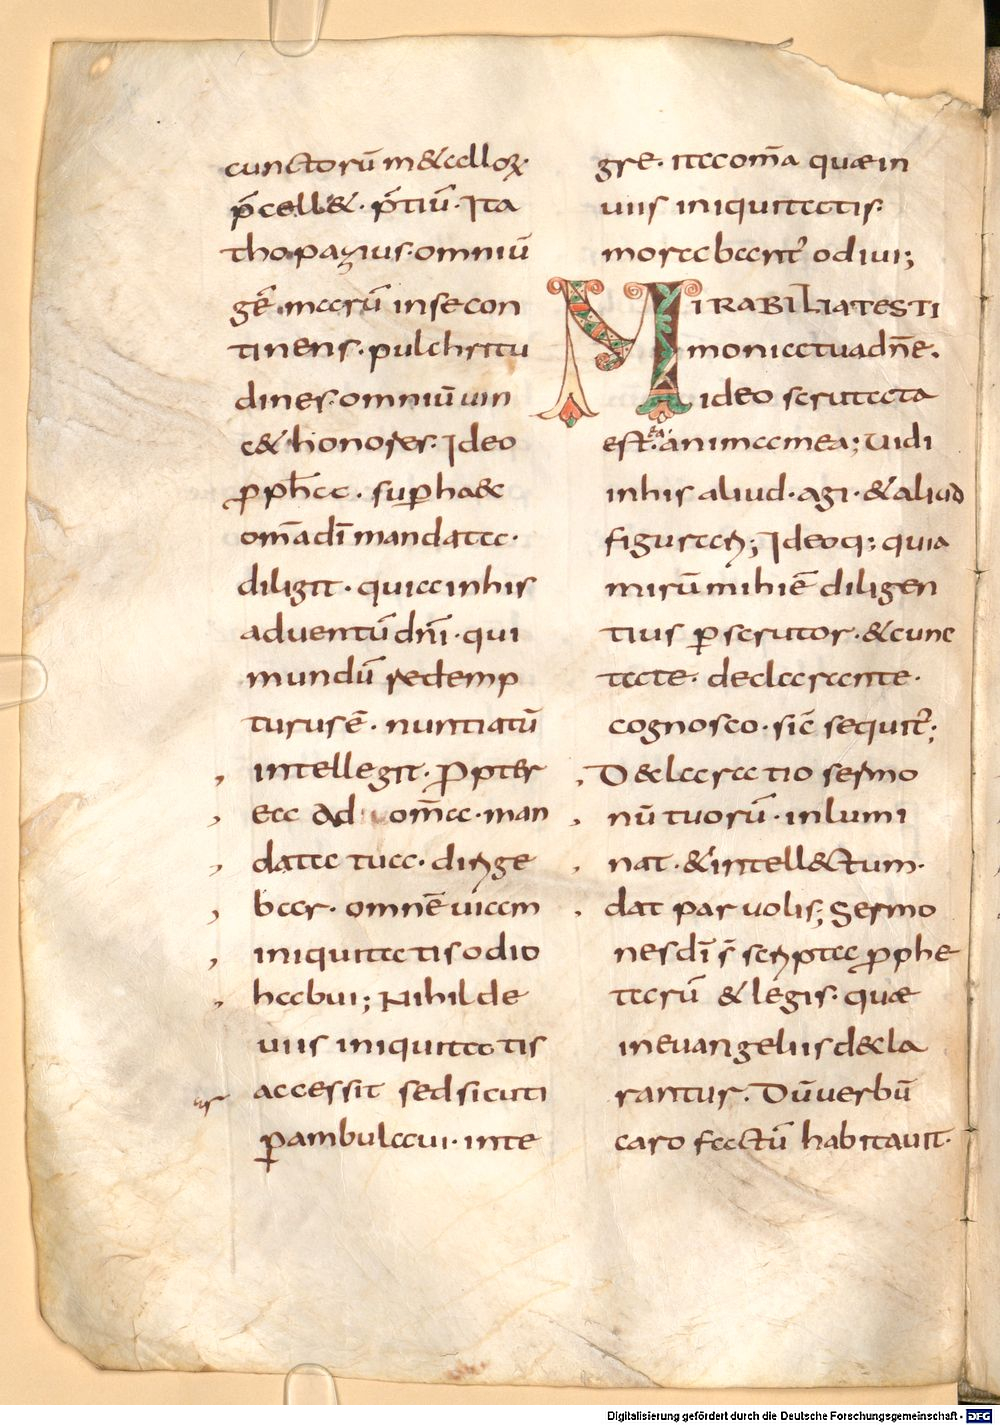 cunctorū m&allorꝝ·
p̄cell&· p̄tiū· Ita
thopazius· omniū
gēmarū in se con
tinens· pulchritu
dines· omniū uin
c& honores· Ideo
ꝓph̄a· suꝑ haec
om̄a dī mandata·
diligit· quia in his
aduentū dn̄i· qui
mundū redemp
turus ē· nuntiatū
intellegit· Propter
ea ad om̄a· man
data tua· dirige
bar· omnē uiam
iniquitatis odio
habui; Nihil de
uiis iniquitatis
accessit sed sicuti
ꝑambulaui· inte
gre· ita om̄a quae in
uiis iniquitatis·
morabant̄ odiui;
MIRABILIA TESTI
monia tua dn̄e·
ideo scrutata
est· ea· anima mea; Uidi
in his aliud· agi· & aliud
figurari; Ideoq; quia
mirū mihi ē diligen
tius ꝑscrutor· & cunc
tate· declarante·
cognosco· sic̄ sequit̄;
Declaratio sermo
nū tuorū· inlumi
nat· & intellectum·
dat paruolis; Sermo
nes dī s̄ scripta ꝓphe
tarū & legis· quae
in euangeliis decla
rantur· Dū uerbū
caro factū habitauit·
Digitalisierung gefördert durch die Deutsche Forschungsgemeinschaft - DFG